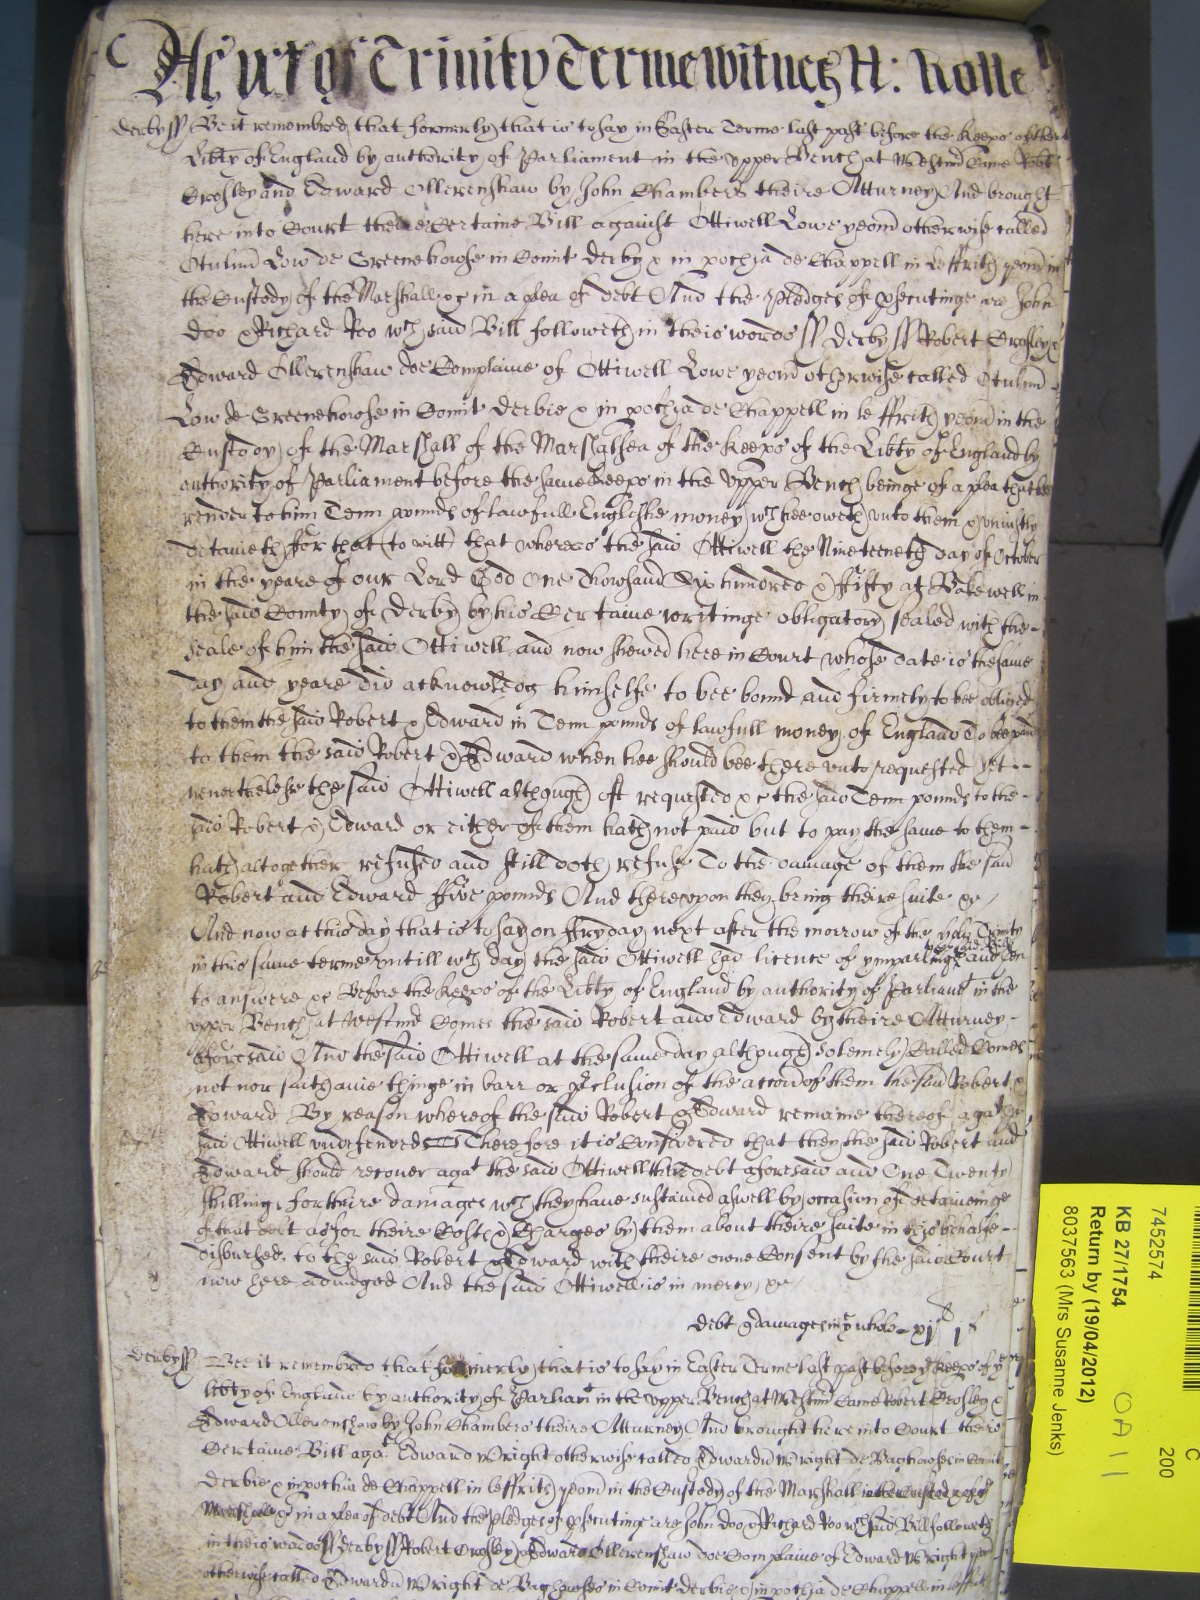 As yet of Trinity Terme Witnes H: Rolle
derby ss Be it remembred that formerly that is to say in Easter Terme last past before the Keeps of the
Libty of England by authority of Parliament in the upper Bench at Westmr Came Robt
Crosley and Edward Ollerenshaw by John Chambers theire Atturney And brought
here into Court there Certaine Bill against Ottiwell Lowe yeom otherwise called
Otulm Low de Greenehowse in Comit derby & in pochia de Chappell in le ffrith yeom in
the Custody of the Marshall &c in a plea of debt And the pledges of psecutinge are John
doo & Richard Roo wch said Bill followeth in theis words ss derby ss Robert Crosley &
Edward Ollerenshaw doe Complaine of Ottiwell Lowe yeom otherwise called Otulm
Low de Greenehowse in Comit derbie & in pochia de Chappell in le ffrith yeom in the
Custody of the Marshall of the Marshalsea of the Keeps of the Libty of England by
authority of Parliament before the same Keeps in the upper Bench beinge of a plea that hee
render to him Tenn pounds of lawfull Englishe money wch hee oweth unto them & uniustly
detaineth for that (to witt) that whereas the said Ottiwell the Nineteenth day of October
in the yeare of our Lord God One Thowsand Six hundred & ffifty at Bakewell in
the said County of derby by his Certaine writinge obligatory sealed with the
seale of him the said Ottiwell and now shewed here in Court whose date is the same
day and yeare did acknowledg himselfe to bee bound and firmely to bee obliged
to them the said Robert & Edward in Tenn pounds of lawfull money of England To bee paid
to them the said Robert & Edward when hee should bee there unto requested yet
nevertheless the said Ottiwell although oft requested &c the said Tenn pounds to the
said Robert & Edward or either of them hath not paid but to pay the same to them
hath altogether refused and still doth refuse To the damage of them the said
Robert and Edward ffive pounds And thereupon they bring theire suite &c
And now at this day that is to say on ffryday next after the morrow of the holy Trinity
in this same terme untill wch day the said Ottiwell had licence of ymparlinge and then
to answere &c Before the Keeps of the Libty of England by authority of Parliamt in the
upper Bench at Westmr Comes the said Robert and Edward by theire Atturney
aforesaid And the said Ottiwell at the same day although solemely Called Comes
not nor saith anie thinge in barr or pclusion of the accon of them the said Robert &
Edward By reason whereof the said Robert & Edward remaine thereof agat the
said Ottiwell undefended Therefore it is Considered that they the said Robert and
Edward should recover agat the said Ottiwell their debt aforesaid and One Twenty
shillings for theire damages wch they have sustained aswell by occasion of detaineinge
of that debt as for theire Costs & Charges by them about theire suite in this behalfe
disbursed to the said Robert & Edward with theire owne Consent by the said Court
now here adiudged And the said Ottiwell is in mercy &c
debt & damages in ye whole xjl js
derby ss Bee it remembred that formerly that is to say in Easter Terme last past before ye Keeps of ye
libty of England by authority of Parliamt in the upper Bench at Westmr Came Robert Crosley &
Edward Ollerenshaw by John Chambers theire Atturney And brought here into Court theire
Certaine Bill agat Edward Wright otherwise called Edwardu Wright de Baghowse in Comit
derbie & in pochia de Chappell in le ffrith yeom in the Custody of the Marshall
&c in a plea of debt And the pledges of psecutinge are John doo & Richard Roo wch said Bill followeth
in theis words ss derby ss Robert Crosley & Edward Ollerenshaw doe Complaine of Edward Wright yeom
otherwise called Edwardu Wright de Baghowse in Comit derbie & in pochia de Chappell in le ffrith
C
200
7452574
KB 27/1754
Return by (19/04/2012)
8037563 (Mrs Susanne Jenks)
OA 11